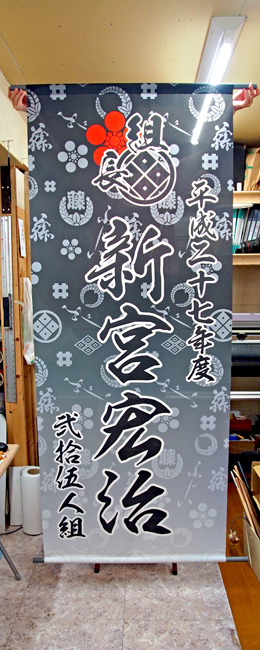 平成二十七年度
組長
新宮宏治
弐拾伍人組